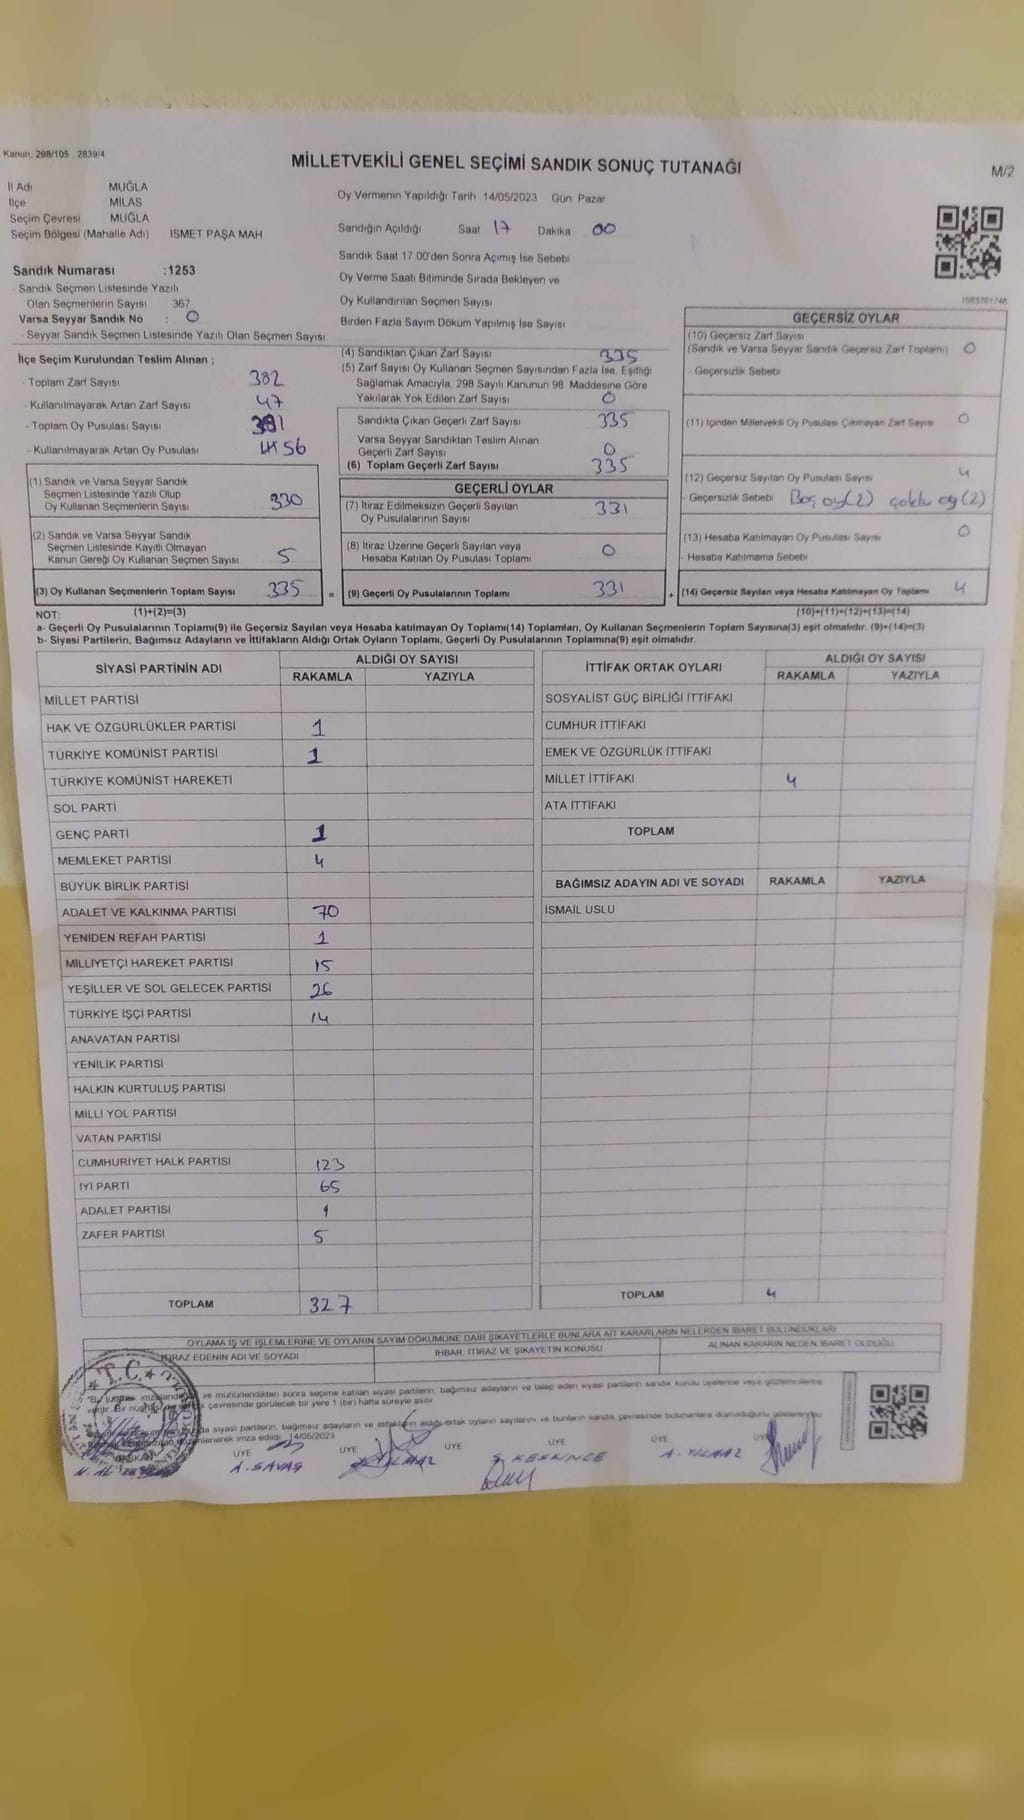 Kanun: 298/105 , 2839/4
MİLLETVEKİLİ GENEL SEÇİMİ SANDIK SONUÇ TUTANAĞI
M/2
İl Adı MUĞLA
İlçe MİLAS
Seçim Çevresi MUĞLA
Seçim Bölgesi (Mahalle Adı) İSMET PAŞA MAH
Sandık Numarası :1253
- Sandık Seçmen Listesinde Yazılı
Olan Seçmenlerin Sayısı 367
Varsa Seyyar Sandık No : 0
- Seyyar Sandık Seçmen Listesinde Yazılı Olan Seçmen Sayısı
Oy Vermenin Yapıldığı Tarih 14/05/2023 Gün Pazar
Sandığın Açıldığı Saat 17 Dakika 00
Sandık Saat 17:00'den Sonra Açımış İse Sebebi
Oy Verme Saati Bitiminde Sırada Bekleyen ve
Oy Kullandırılan Seçmen Sayısı
Birden Fazla Sayım Döküm Yapılmış İse Sayısı
İlçe Seçim Kurulundan Teslim Alınan ;
- Toplam Zarf Sayısı 382
- Kullanılmayarak Artan Zarf Sayısı 47
- Toplam Oy Pusulası Sayısı 391
- Kullanılmayarak Artan Oy Pusulası 56
(1) Sandık ve Varsa Seyyar Sandık
Seçmen Listesinde Yazılı Olup
Oy Kullanan Seçmenlerin Sayısı 330
(2) Sandık ve Varsa Seyyar Sandık
Seçmen Listesinde Kayıtlı Olmayan
Kanun Gereği Oy Kullanan Seçmen Sayısı 5
(3) Oy Kullanan Seçmenlerin Toplam Sayısı 335 =
(1)+(2)=(3)
(4) Sandıktan Çıkan Zarf Sayısı 335
(5) Zarf Sayısı Oy Kullanan Seçmen Sayısından Fazla İse, Eşitliği
Sağlamak Amacıyla, 298 Sayılı Kanunun 98. Maddesine Göre
Yakılarak Yok Edilen Zarf Sayısı 0
Sandıkta Çıkan Geçerli Zarf Sayısı 335
Varsa Seyyar Sandıktan Teslim Alınan
Geçerli Zarf Sayısı 0
(6) Toplam Geçerli Zarf Sayısı 335
GEÇERLİ OYLAR
(7) İtiraz Edilmeksizin Geçerli Sayılan
Oy Pusulalarının Sayısı 331
(8) İtiraz Üzerine Geçerli Sayılan veya
Hesaba Katılan Oy Pusulası Toplamı 0
(9) Geçerli Oy Pusulalarının Toplamı 331 +
GEÇERSİZ OYLAR
(10) Geçersiz Zarf Sayısı
(Sandık ve Varsa Seyyar Sandık Geçersiz Zarf Toplamı) 0
- Geçersizlik Sebebi
(11) İçinden Milletvekili Oy Pusulası Çıkmayan Zarf Sayısı 0
(12) Geçersiz Sayılan Oy Pusulası Sayısı 4
- Geçersizlik Sebebi Boş oy(2) çoklu oy(2)
(13) Hesaba Katılmayan Oy Pusulası Sayısı 0
- Hesaba Katılmama Sebebi
(14) Geçersiz Sayılan veya Hesaba Katılmayan Oy Toplamı 4
(10)+(11)+(12)+(13)=(14)
NOT:
a- Geçerli Oy Pusulalarının Toplamı(9) ile Geçersiz Sayılan veya Hesaba katılmayan Oy Toplamı(14) Toplamları, Oy Kullanan Seçmenlerin Toplam Sayısına(3) eşit olmalıdır. (9)+(14)=(3)
b- Siyasi Partilerin, Bağımsız Adayların ve İttifakların Aldığı Ortak Oyların Toplamı, Geçerli Oy Pusulalarının Toplamına(9) eşit olmalıdır.
SİYASİ PARTİNİN ADI ALDIĞI OY SAYISI
RAKAMLA YAZIYLA
MİLLET PARTİSİ
HAK VE ÖZGÜRLÜKLER PARTİSİ 1
TÜRKİYE KOMÜNİST PARTİSİ 1
TÜRKİYE KOMÜNİST HAREKETİ
SOL PARTİ
GENÇ PARTİ 1
MEMLEKET PARTİSİ 4
BÜYÜK BİRLİK PARTİSİ
ADALET VE KALKINMA PARTİSİ 70
YENİDEN REFAH PARTİSİ 1
MİLLİYETÇİ HAREKET PARTİSİ 15
YEŞİLLER VE SOL GELECEK PARTİSİ 26
TÜRKİYE İŞÇİ PARTİSİ 14
ANAVATAN PARTİSİ
YENİLİK PARTİSİ
HALKIN KURTULUŞ PARTİSİ
MİLLİ YOL PARTİSİ
VATAN PARTİSİ
CUMHURİYET HALK PARTİSİ 123
İYİ PARTİ 65
ADALET PARTİSİ 1
ZAFER PARTİSİ 5
TOPLAM 327
İTTİFAK ORTAK OYLARI ALDIĞI OY SAYISI
RAKAMLA YAZIYLA
SOSYALİST GÜÇ BİRLİĞİ İTTİFAKI
CUMHUR İTTİFAKI
EMEK VE ÖZGÜRLÜK İTTİFAKI
MİLLET İTTİFAKI 4
ATA İTTİFAKI
TOPLAM
BAĞIMSIZ ADAYIN ADI VE SOYADI RAKAMLA YAZIYLA
İSMAİL USLU
TOPLAM 4
OYLAMA İŞ VE İŞLEMLERİNE VE OYLARIN SAYIM DÖKÜMÜNE DAİR ŞİKAYETLERLE BUNLARA AİT KARARLARIN NELERDEN İBARET BULUNDUKLARI
İTİRAZ EDENİN ADI VE SOYADI İHBAR, İTİRAZ VE ŞİKAYETİN KONUSU ALINAN KARARIN NEDEN İBARET OLDUĞU
ve mühürlendikten sonra seçime katılan siyasi partilerin, bağımsız adayların ve talep eden siyasi partilerin sandık kurulu üyelerine veya gözlemcilerine
çevresinde görülecek bir yere 1 (bir) hafta süreyle asılır
siyasi partilerin, bağımsız adayların ve ittifakların aldığı ortak oyların sayılarını ve bunların sandık çevresinde bulunanlara duyurulduğunu gösteren
düzenlenerek imza edildi. 14/05/2023
T.C.
BAŞKAN ÜYE ÜYE ÜYE ÜYE ÜYE ÜYE
A. SAVAŞ YILMAZ S. KESKİNCE A. YILMAZ